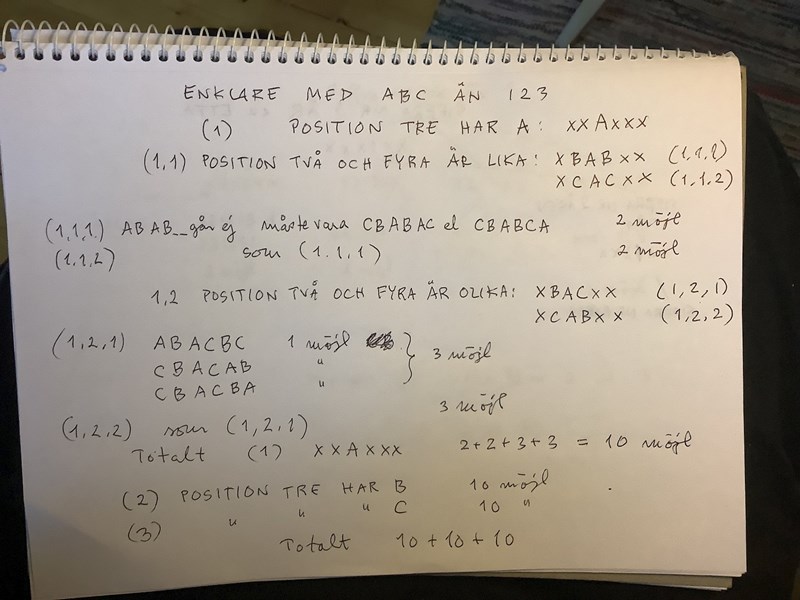 ENKLARE MED ABC ÄN 123
(1) POSITION TRE HAR A: XXAXXX
(1,1) POSITION TVÅ OCH FYRA ÄR LIKA: XBABXX (1,1,1)
XCACXX (1,1,2)
(1,1,1) ABAB__går ej måste vara CBABAC el CBABCA 2 möjl
(1,1,2) som (1.1,1) 2 möjl
1,2 POSITION TVÅ OCH FYRA ÄR OLIKA: XBACXX (1,2,1)
XCABXX (1,2,2)
(1,2,1) ABACBC 1 möjl
CBACAB " } 3 möjl
CBACBA "
(1,2,2) som (1,2,1) 3 möjl
Totalt (1) XXAXXX 2+2+3+3 = 10 möjl
(2) POSITION TRE HAR B 10 möjl
(3) " " " C 10 "
Totalt 10+10+10